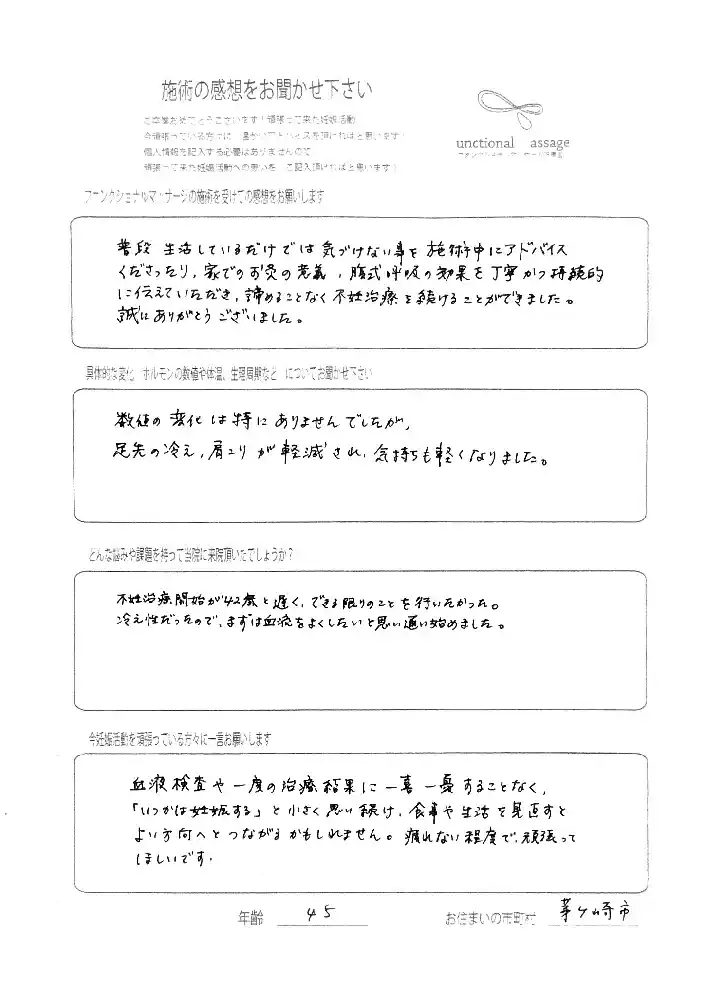 施術の感想をお聞かせ下さい
ご卒業おめでとうございます！頑張って来た妊娠活動
今頑張っている方けに 温かいアドバイスを頂ければと思います！
個人情報を記入する必要はありませんので
頑張って来た妊娠活動への思いを ご記入頂ければと思います！
unctional assage
ファンクショナルマッサージの施術を受けての感想をお願いします
普段 生活しているだけでは 気づけない事を 施術中にアドバイス
くださったり、家でのお灸の意義、腹式呼吸の効果を丁寧かつ持続的
に伝えていただき、諦めることなく不妊治療を続けることができました。
誠にありがとうございました。
具体的な変化 ホルモンの数値や体温、生理周期など についてお聞かせ下さい
数値の変化は特にありませんでしたが、
足先の冷え、肩こりが軽減され、気持ちも軽くなりました。
どんな悩みや課題を持って当院に来院頂いたでしょうか？
不妊治療開始が42歳と遅く、できる限りのことを行いたかった。
冷え性だったので、まずは血液をよくしたいと思い通い始めました。
今妊娠活動を頑張っている方々に一言お願いします
血液検査や一度の治療結果に一喜一憂することなく、
「いつかは妊娠する」と小さく思い続け、食事や生活を見直すと
よい方向へとつながるかもしれません。疲れない程度で、頑張って
ほしいです。
年齢 45 お住まいの市町村 茅ヶ崎市